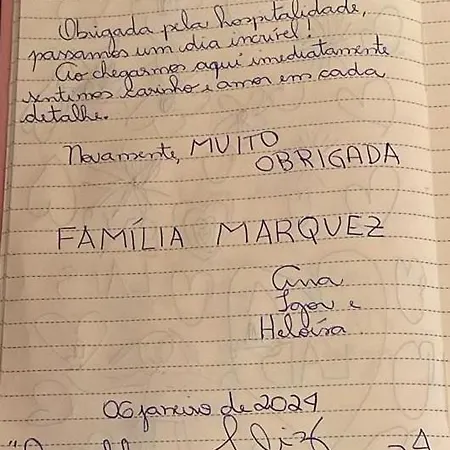 Obrigada pela hospitalidade,
passamos um dia incrível!
Ao chegarmos aqui imediatamente
sentimos carinho e amor em cada
detalhe.
Novamente, MUITO
OBRIGADA
FAMÍLIA MARQUEZ
Ana
Igor e
Heloísa
06 janeiro de 2024